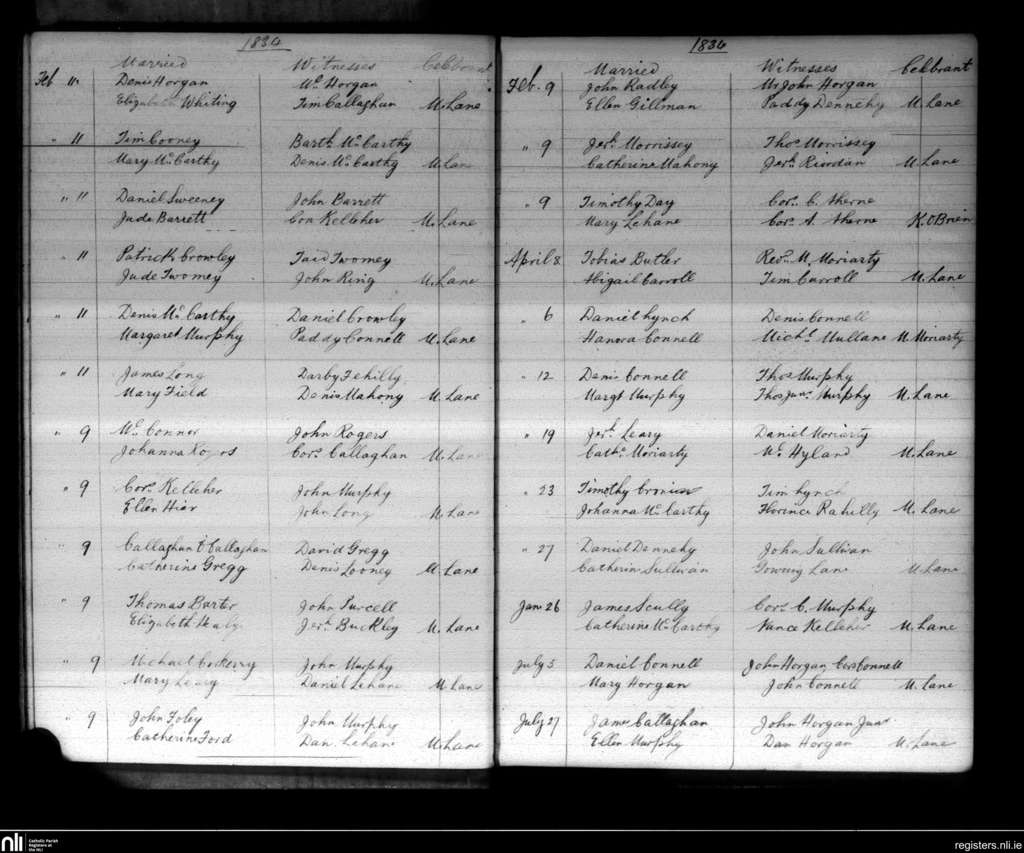 1836
Married Witnesses Celebrant
Feb 11 Denis Horgan Wm Horgan
Elizabeth Whiting Tim Callaghan M. Lane
" 11 Tim Cooney Barth. McCarthy
Mary McCarthy Denis McCarthy M Lane
" 11 Daniel Sweeney John Barrett
Jude Barrett Con Kelleher M. Lane
" 11 Patrick Crowley Taid Twomey
Jude Twomey John Ring M. Lane
" 11 Denis McCarthy Daniel Crowley
Margaret Murphy Paddy Connell M. Lane
" 11 James Long Darby Fehilly
Mary Field Denis Mahony M. Lane
" 9 Wm Connor John Rogers
Johanna Rogers Cors. Callaghan M. Lane
" 9 Cors. Kelleher John Murphy
Ellen Hier John Long M. Lane
" 9 Callaghan O'Callaghan David Gregg
Catherine Gregg Denis Looney M. Lane
" 9 Thomas Barter John Purcell
Elizabeth Healy Jerh. Buckley M. Lane
" 9 Michael Cockerry John Murphy
Mary Leary Daniel Lehane M Lane
" 9 John Foley John Murphy
Catherine Ford Dan. Lehane M. Lane
1836
Married Witnesses Celbrant
Feb. 9 John Radley Mr John Horgan
Ellen Gillman Paddy Dennehy M. Lane
" 9 Jerh. Morrissey Thos Morrissey
Catherine Mahony Jerh. Riordan M. Lane
" 9 Timothy Day Cors. C. Aherne
Mary Lehane Cors. A. Aherne K. O'Brien
April 8 Tobias Butler Revd. M. Moriarty
Abigail Carroll Tim Carroll M. Lane
" 6 Daniel Lynch Denis Connell
Hanora Connell Michl. Mullane M Moriarty
" 12 Denis Connell Thos Murphy
Margt Murphy Thos Junr. Murphy M. Lane
" 19 Jerh. Leary Daniel Moriarty
Cathe. Moriarty Wm. Hyland M. Lane
" 23 Timothy Cronin Tim Lynch
Johanna McCarthy Florince Rahilly M. Lane
" 27 Daniel Dennehy John Sullivan
Catherin Sullivan Lane M Lane
Jan 26 James Scully Cors. C. Murphy
Catherine McCarthy Nance Kelleher M. Lane
July 5 Daniel Connell John Horgan Cors Connell
Mary Horgan John Connell M. Lane
July 27 James Callaghan John Horgan Junr
Ellen Murphy Dan Horgan M. Lane
nli
Catholic Parish
Registers at
the NLI
registers.nli.ie